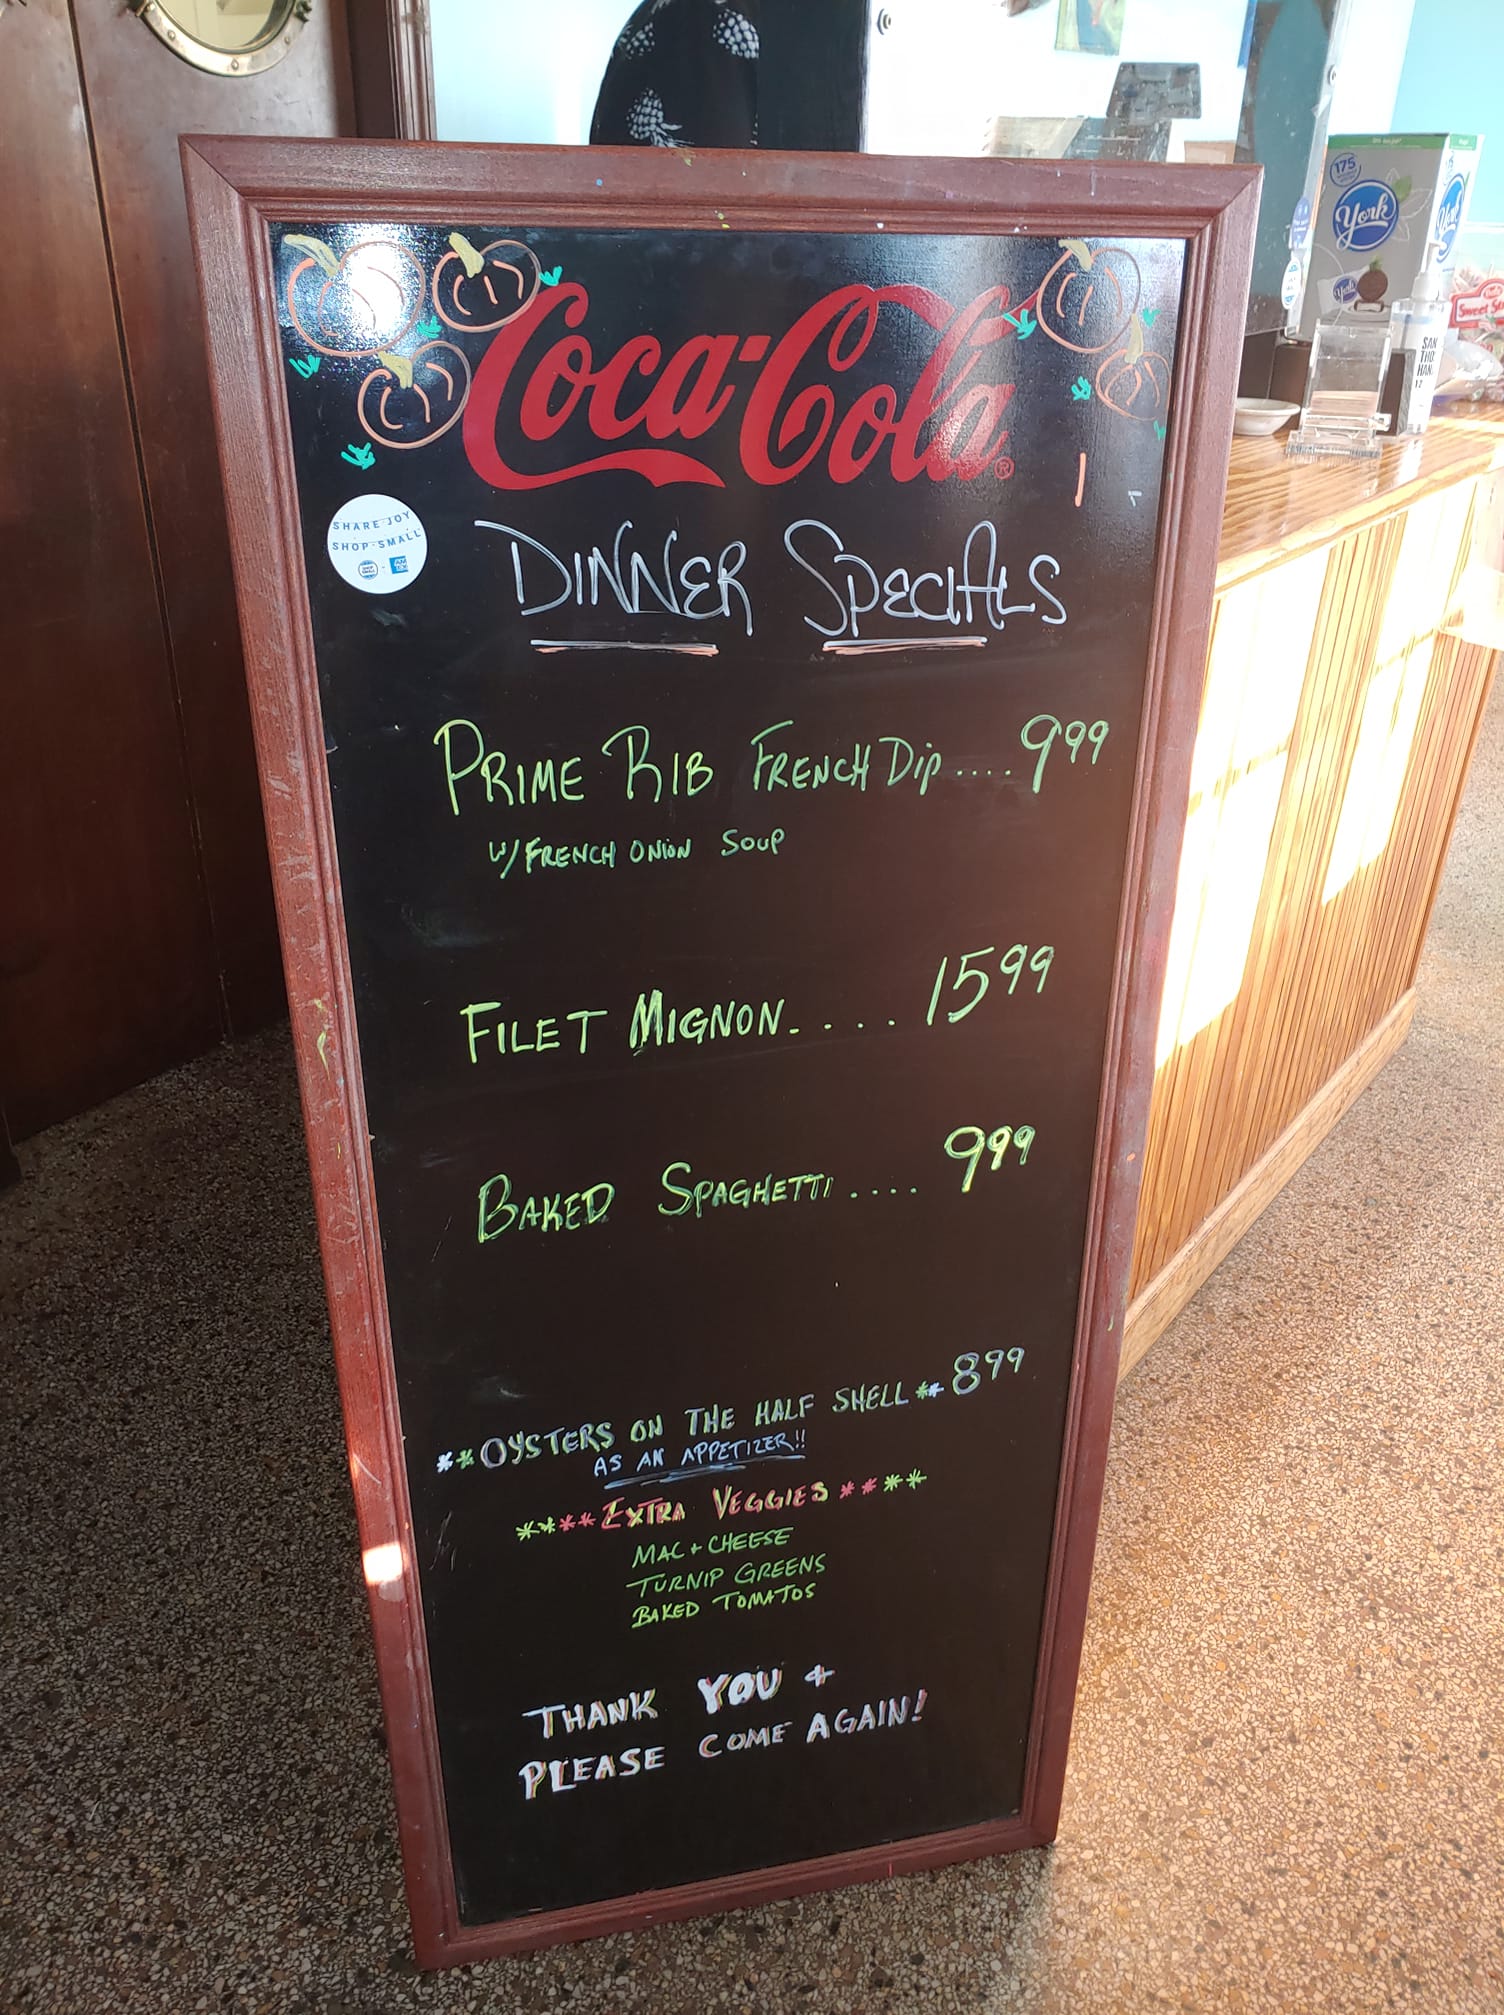 Coca-Cola®
SHARE JOY
SHOP SMALL
DINNER SPECIALS
PRIME RIB FRENCH DIP .... 9 99
W/ FRENCH ONION SOUP
FILET MIGNON..... 15 99
BAKED SPAGHETTI .... 9 99
**OYSTERS ON THE HALF SHELL** 8 99
AS AN APPETIZER!!
****EXTRA VEGGIES****
MAC + CHEESE
TURNIP GREENS
BAKED TOMATOS
THANK YOU +
PLEASE COME AGAIN!
175
York
York